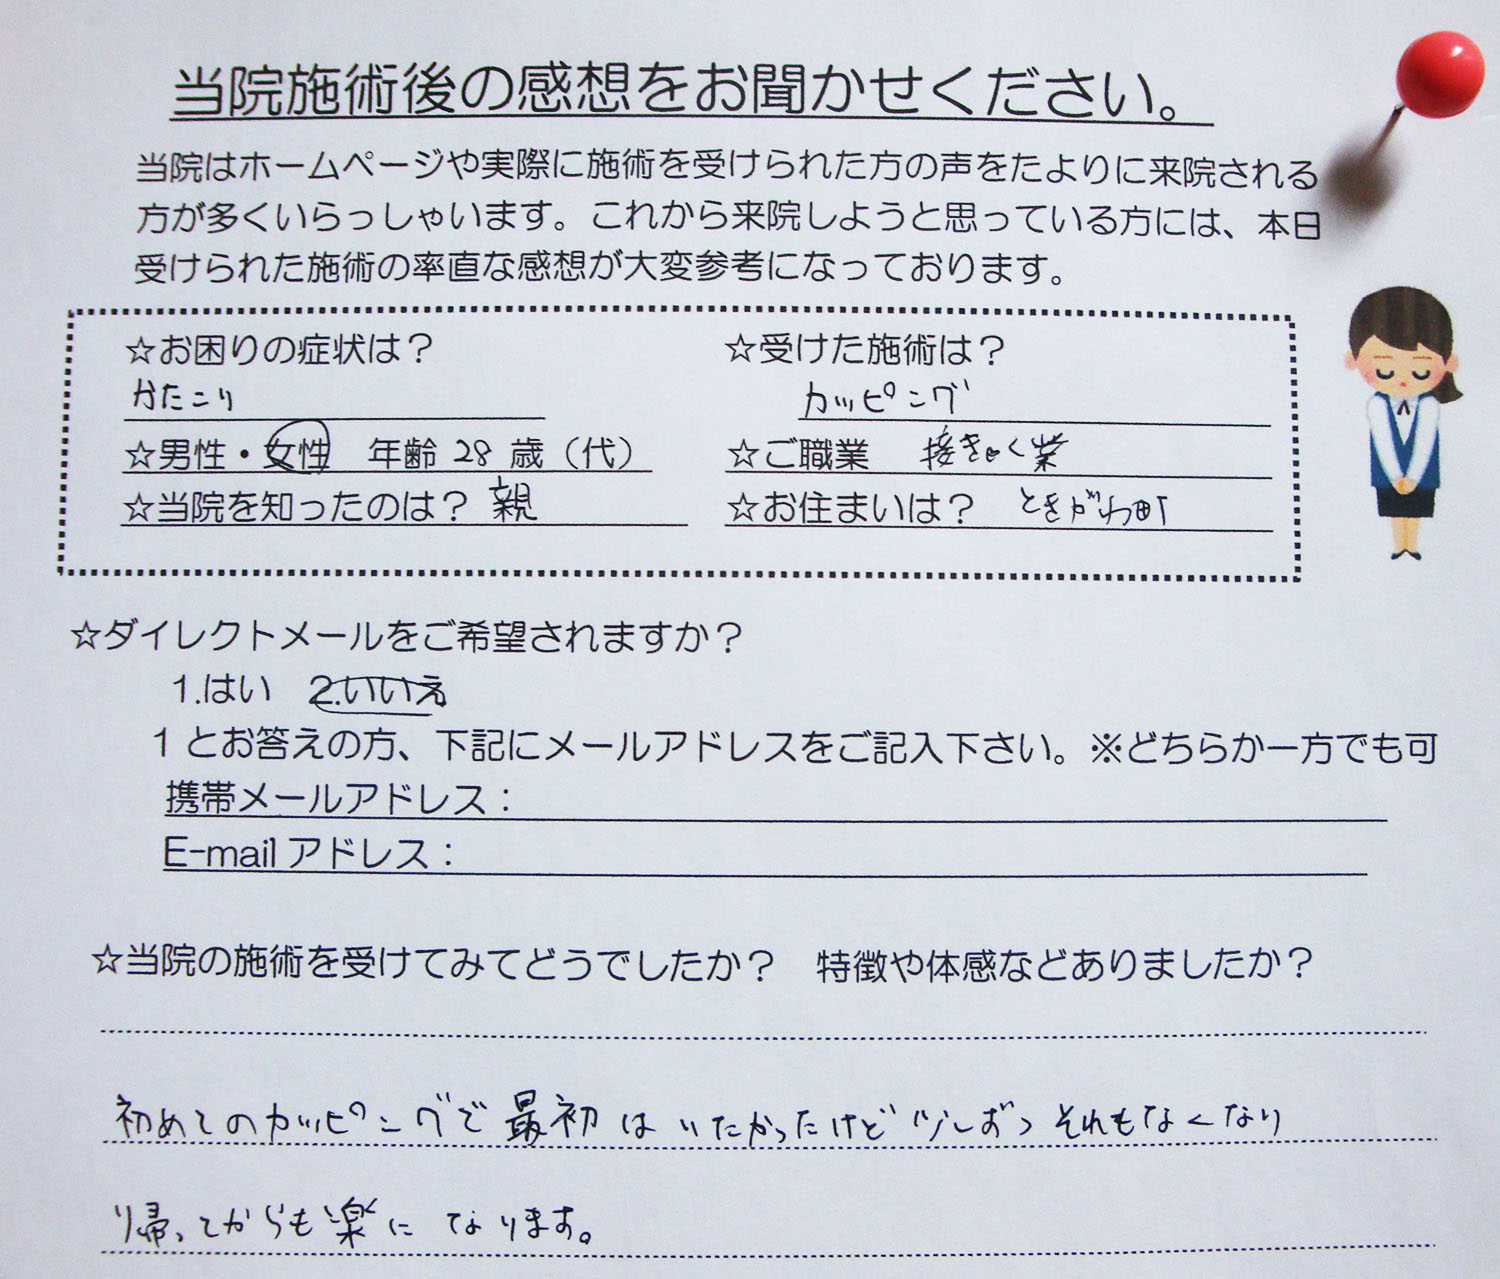 当院施術後の感想をお聞かせください。
当院はホームページや実際に施術を受けられた方の声をたよりに来院される
方が多くいらっしゃいます。これから来院しようと思っている方には、本日
受けられた施術の率直な感想が大変参考になっております。
☆お困りの症状は？ ☆受けた施術は？
かたこり カッピング
☆男性・女性 年齢 28 歳（代） ☆ご職業 接きゃく業
☆当院を知ったのは？ 親 ☆お住まいは？ ときがわ町
☆ダイレクトメールをご希望されますか？
1.はい 2.いいえ
1 とお答えの方、下記にメールアドレスをご記入下さい。※どちらか一方でも可
携帯メールアドレス：
E-mail アドレス：
☆当院の施術を受けてみてどうでしたか？ 特徴や体感などありましたか？
初めてのカッピングで最初はいたかったけど少しずつそれもなくなり
帰ってからも楽になります。